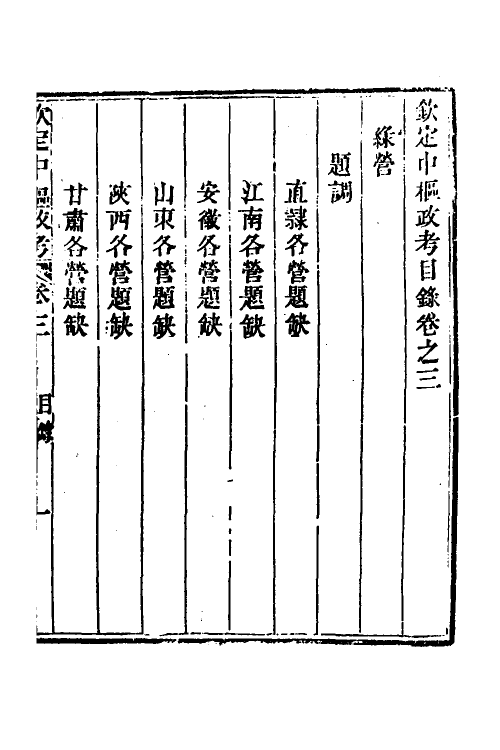 欽定中樞政考目錄卷之三
綠營
題調
直隸各營題缺
江南各營題缺
安徽各營題缺
山東各營題缺
陝西各營題缺
甘肅各營題缺
欽定中樞政考 卷三 目錄 一